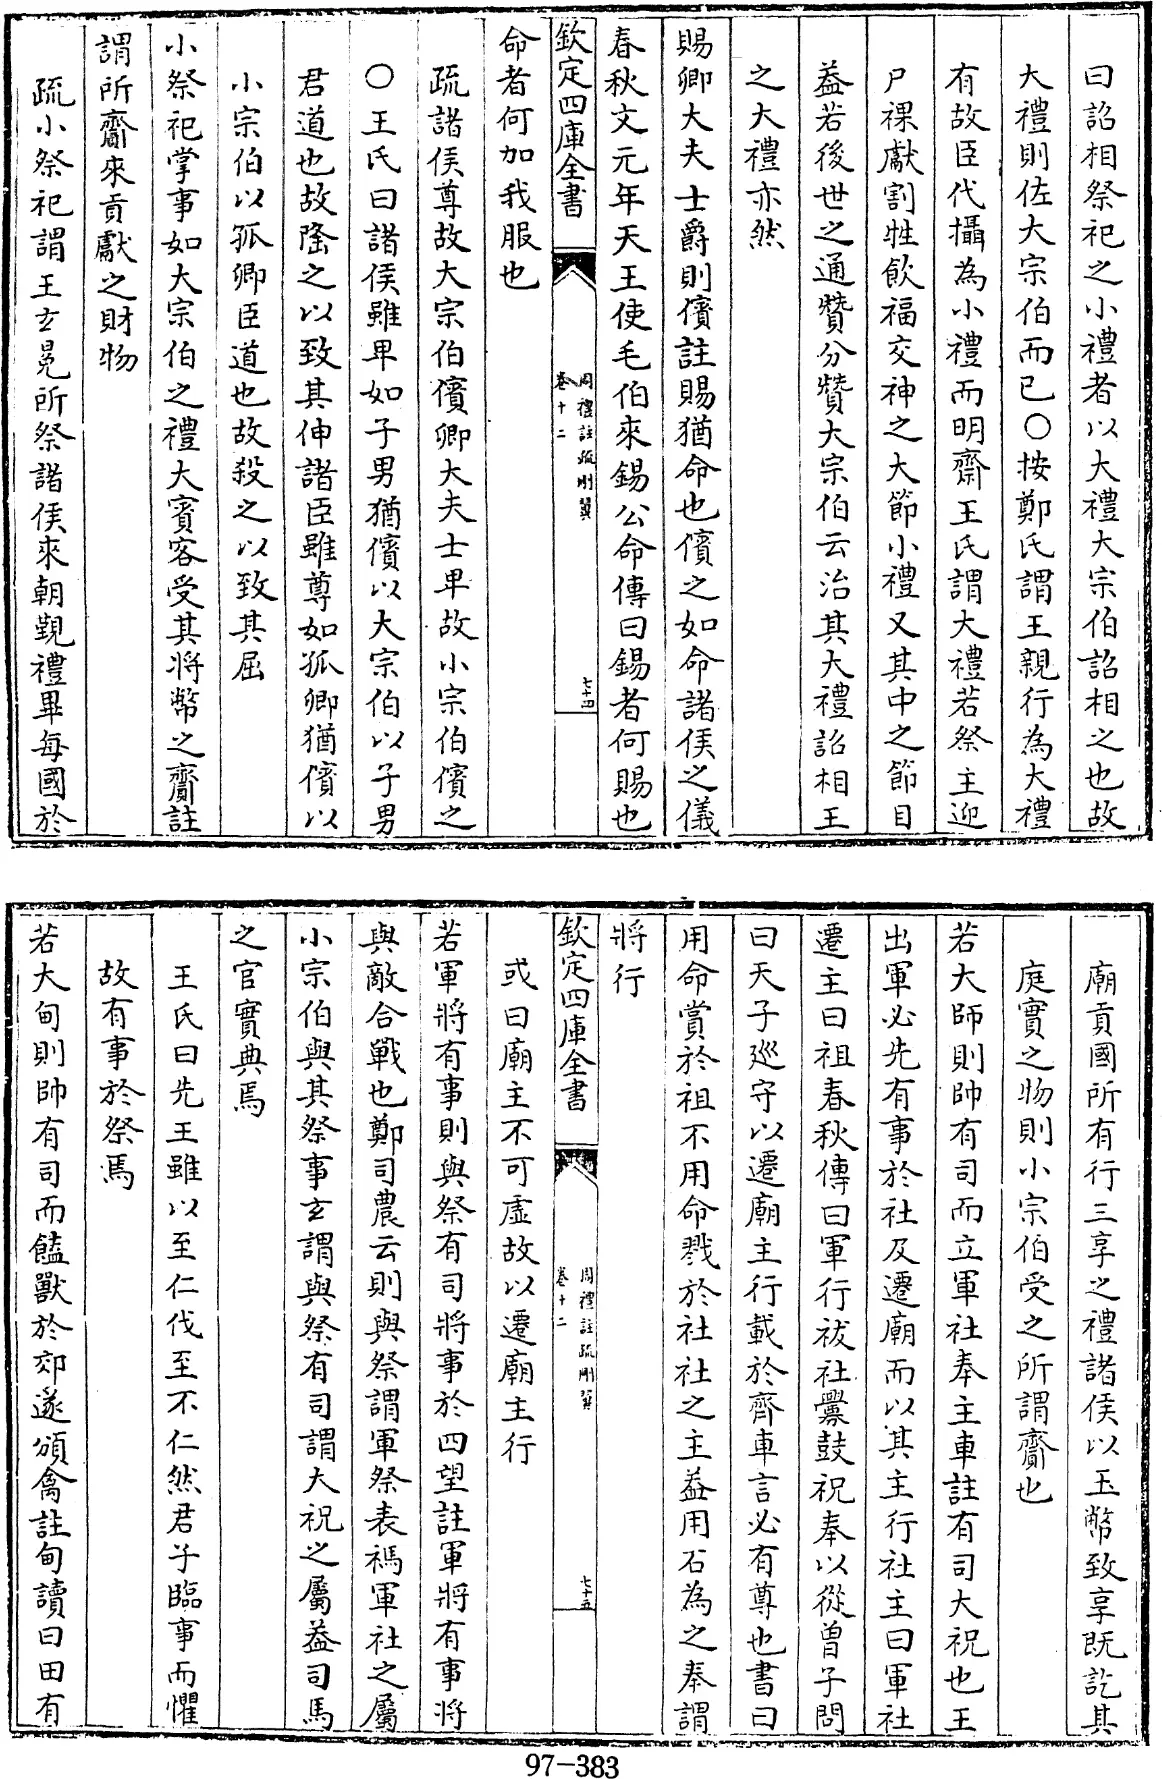 曰詔相祭祀之小禮者以大禮大宗伯詔相之也故
大禮則佐大宗伯而已○按鄭氏謂王親行為大禮
有故臣代攝為小禮而明齋王氏謂大禮若祭主迎
尸祼獻割牲飲福交神之大節小禮又其中之節目
益若後世之通贊分贊大宗伯云治其大禮詔相王
之大禮亦然
賜卿大夫士爵則儐註賜猶命也儐之如命諸侯之儀
春秋文元年天王使毛伯來錫公命傳曰錫者何賜也
欽定四庫全書
周禮註疏刪翼
卷十二
七十四
命者何加我服也
疏諸侯尊故大宗伯儐卿大夫士卑故小宗伯儐之
○王氏曰諸侯雖卑如子男猶儐以大宗伯以子男
君道也故隆之以致其伸諸臣雖尊如孤卿猶儐以
小宗伯以孤卿臣道也故殺之以致其屈
小祭祀掌事如大宗伯之禮大賓客受其將幣之齎註
謂所齎來貢獻之財物
疏小祭祀謂王玄冕所祭諸侯來朝覲禮畢每國於
廟貢國所有行三享之禮諸侯以玉幣致享既訖其
庭實之物則小宗伯受之所謂齎也
若大師則帥有司而立軍社奉主車註有司大祝也王
出軍必先有事於社及遷廟而以其主行社主曰軍社
遷主曰祖春秋傳曰軍行祓社釁鼓祝奉以從曾子問
曰天子巡守以遷廟主行載於齊車言必有尊也書曰
用命賞於祖不用命戮於社社之主益用石為之奉謂
將行
欽定四庫全書
周禮註疏刪翼
卷十二
七十五
或曰廟主不可虛故以遷廟主行
若軍將有事則與祭有司將事於四望註軍將有事將
與敵合戰也鄭司農云則與祭謂軍祭表禡軍社之屬
小宗伯與其祭事玄謂與祭有司謂大祝之屬益司馬
之官實典焉
王氏曰先王雖以至仁伐至不仁然君子臨事而懼
故有事於祭焉
若大甸則帥有司而饁獸於郊遂頒禽註甸讀曰田有
97-383